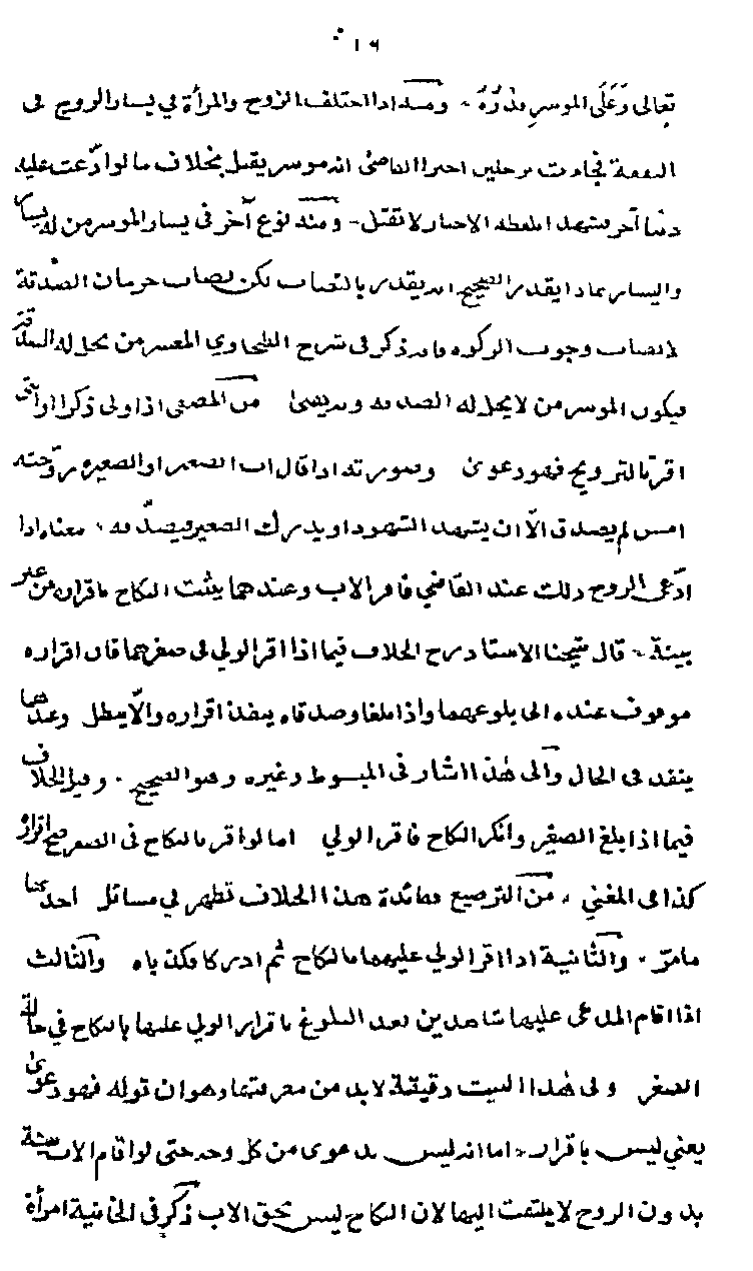 ١٩
تعالى وَعَلَى الموسر قَدَرُهُ ـ ومسئلة اذا اختلف الزوج والمرأة في يسار الزوج فى
النفقة فجاءت برجلين اخبرا القاضى انه موسر يقبل بخلاف ما لو ادّعت عليه
دينا آخر يشهد بلفظه الاخبار لا تقبل ـ ومنه نوع آخر فى يسار الموسر من له يسار
واليسار بماذا يقدر الصحيح انه يقدر بالنصاب لكن نصاب حرمان الصدقة
لا نصاب وجوب الزكوة وقد ذكر فى شرح الطحاوي المعسر من يحل له الصدقة
فيكون الموسر من لا يحل له الصدقة من المصفى اذا ولى ذكرا او انثى
اقر بالتزويج فهو دعوى وصورته اذا قال اب الصغير او الصغيرة زوّجته
امس لم يصدق الّا ان يشهد الشهود او يدرك الصغير فيصدّقه ، معناه اذا
ادّعى الزوج ذلك عند القاضي فاقر الاب وعندهما يثبت النكاح باقراره من غير
بينة ـ قال شيخنا الاستاد رح الخلاف فيما اذا اقر الولي فى صغرهما فان اقراره
موقوف عنده الى بلوغهما واذا بلغا وصدقاه ينفذ اقراره والّا يبطل وعندهما
ينفذ فى الحال والى هٰذا اشار فى المبسوط وغيره وهو الصحيح . وقيل الخلاف
فيما اذا بلغ الصغير وانكر النكاح فاقر الولي اما لو اقر بالنكاح فى الصغر صح اقراره
كذا فى المغني ، من الترصيع وفائدة هذا الخلاف تظهر في مسائل احدٰىها
ما مرّ ، والثانية اذا اقر الولي عليهما بالنكاح ثم ادركا وكذباه والثالث
اذا اقام المدعى عليها شاهدين بعد البلوغ باقرار الولي عليها بالنكاح في حالة
الصغر وفى هٰذا البيت دقيقة لابد من معرفتها وهو ان قوله فهو دعوى
يعني ليس باقرار ، اما انه ليس بدعوى من كل وجه حتى لو اقام الاب بينة
بدون الزوج لا يلتفت اليها لان النكاح ليس بحق الاب ذكر فى الخانية امرأة